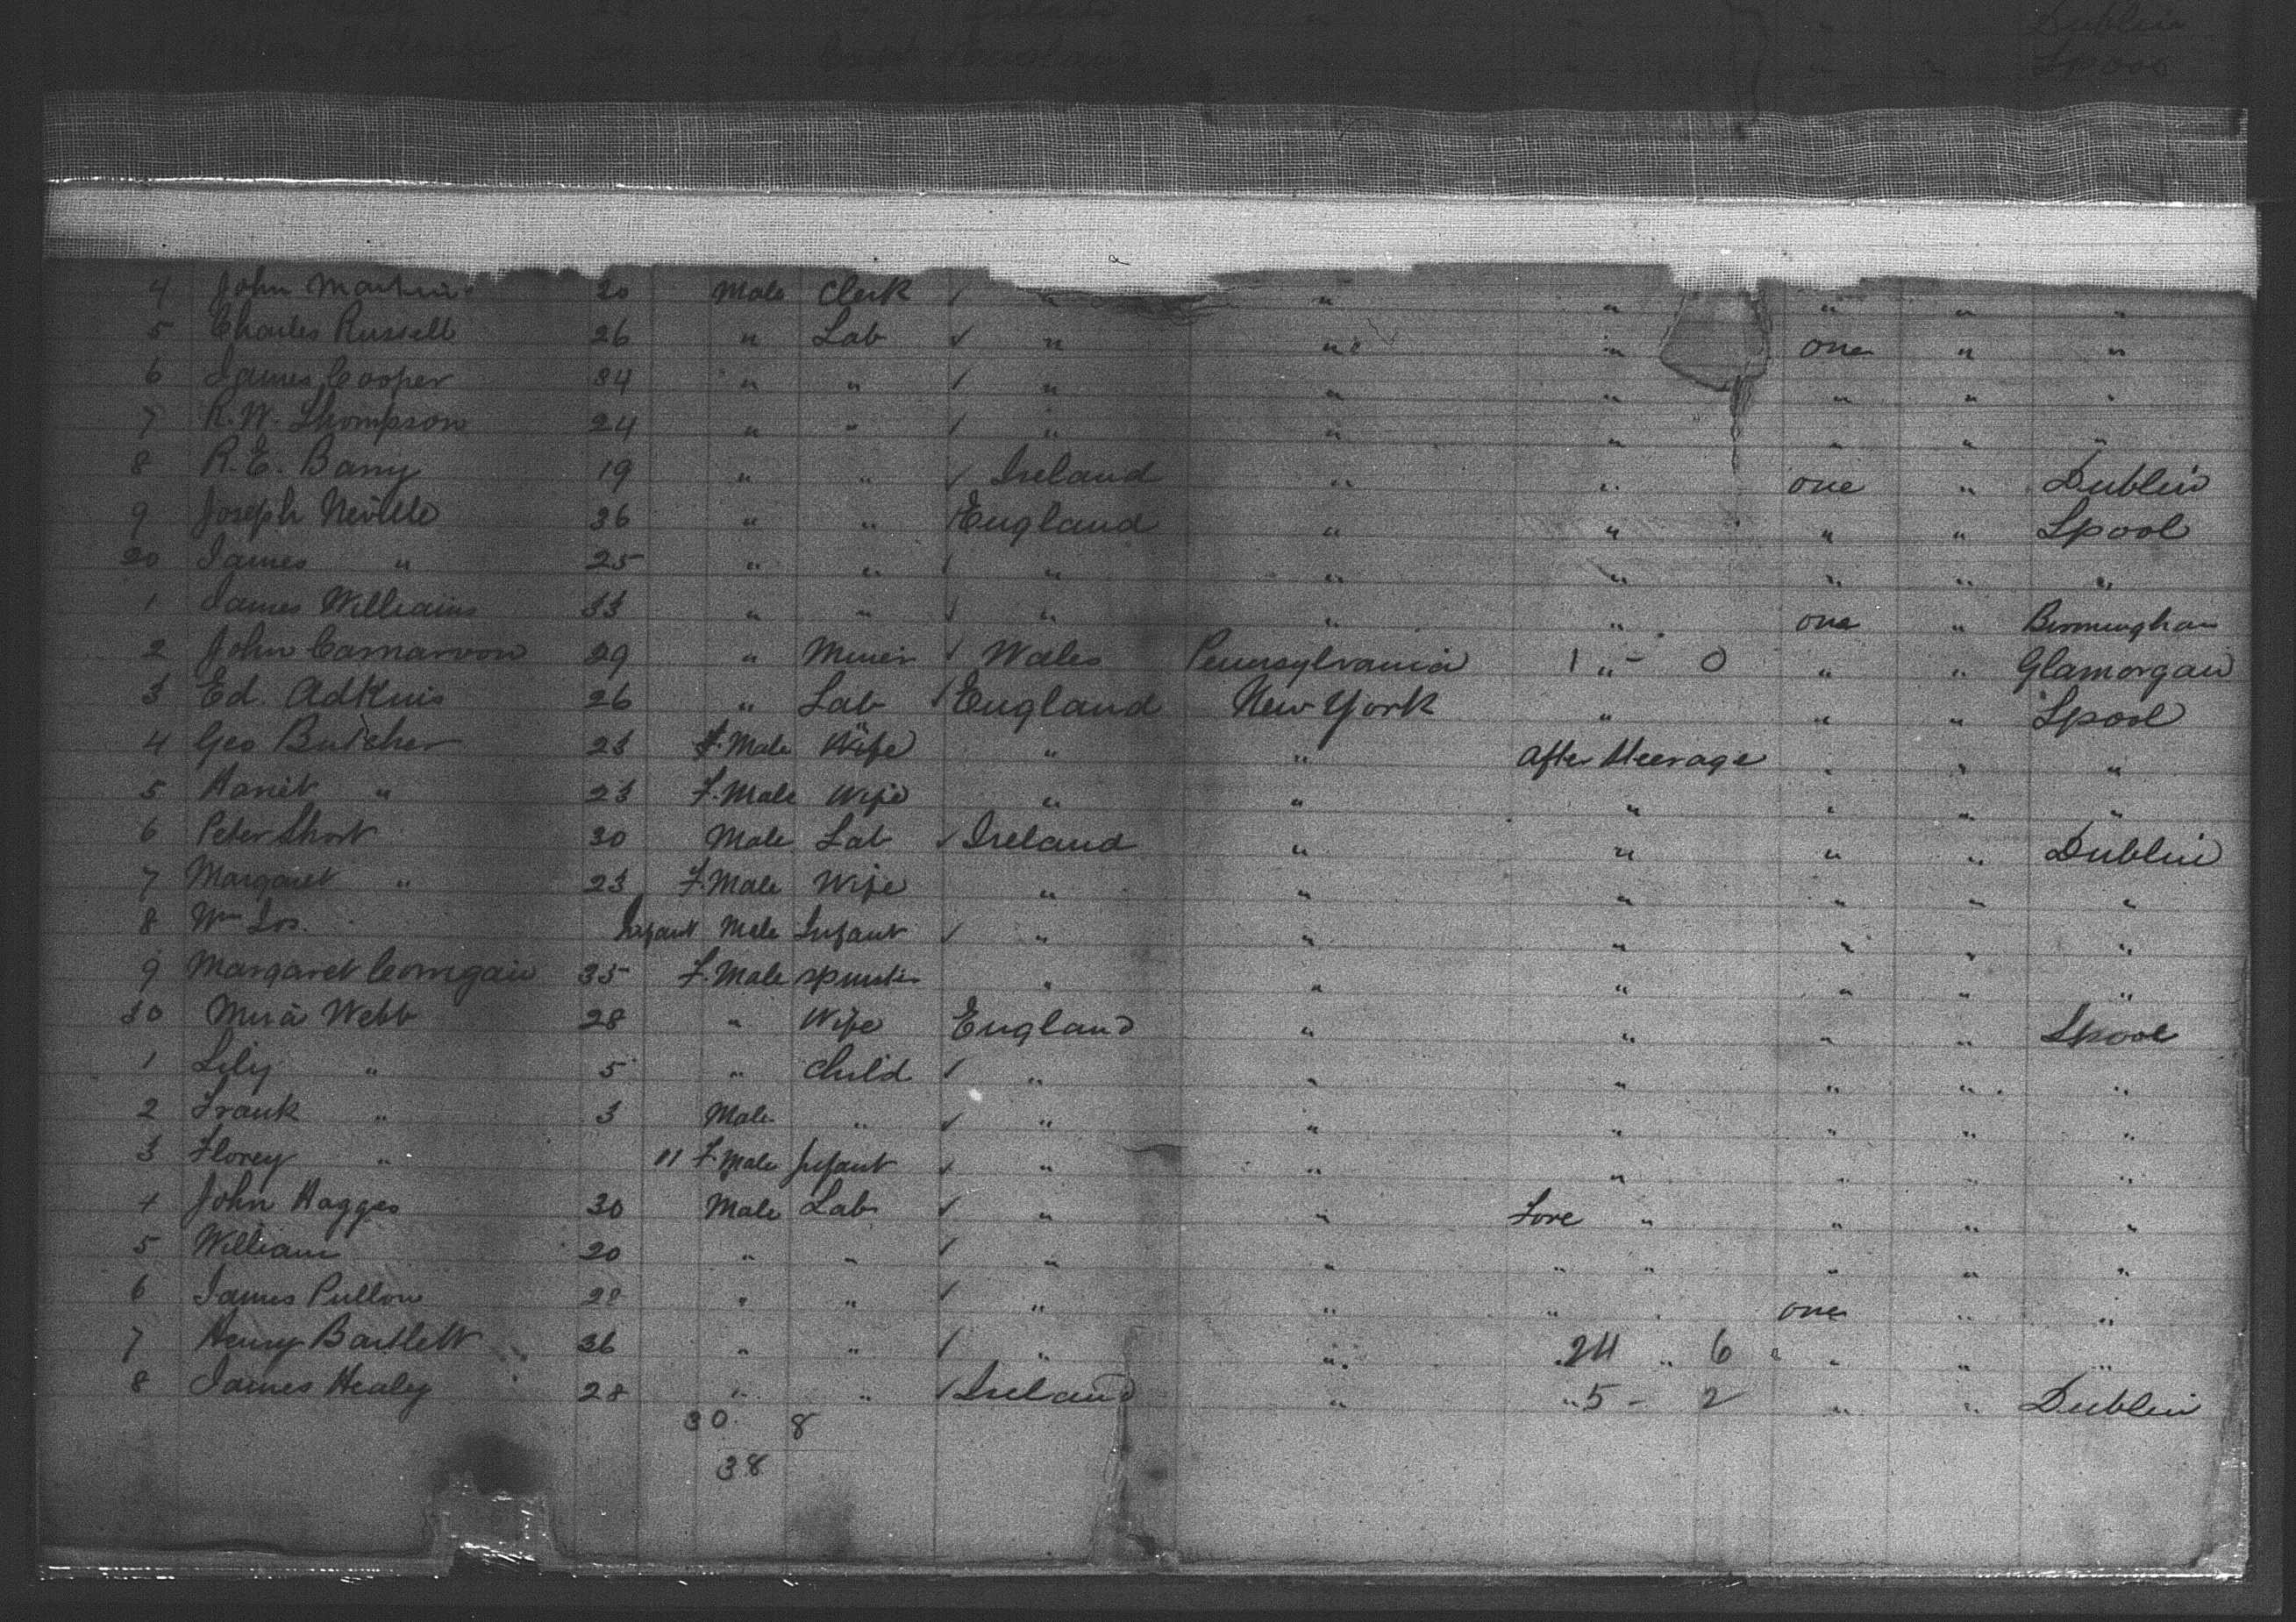 Dublin
Lpool
4 John Martin 20 Male Clerk ✓ " " " " " "
5 Charles Russell 26 " Lab ✓ " " " one " "
6 James Cooper 34 " " ✓ " " " " " "
7 R. W. Thompson 24 " " ✓ " " " " " "
8 R. E. Barry 19 " " ✓ Ireland " " one " Dublin
9 Joseph Neville 36 " " ✓ England " " " " Lpool
20 James " 25 " " ✓ " " " " " "
1 James Williams 33 " " ✓ " " " one " Birmingham
2 John Carnarvon 29 " Miner ✓ Wales Pennsylvania 1 " - 0 " " Glamorgan
3 Ed. Adkins 26 " Lab ✓ England New York " " " Lpool
4 Geo Butcher 23 F. Male Wife " " After Steerage " " "
5 Harriet " 23 F. Male Wife " " " " " "
6 Peter Short 30 Male Lab ✓ Ireland " " " " Dublin
7 Margaret " 23 F. Male Wife " " " " " "
8 Wm Jos. Infant Male Infant ✓ " " " " " "
9 Margaret 35 F. Male " " " " " "
30 Webb 28 " Wife England " " " " Lpool
1 Lily " 5 " Child ✓ " " " " " "
2 Frank " 3 Male " ✓ " " " " " "
3 Florey " 11 F. Male Infant ✓ " " " " " "
4 John Hagges 30 Male Lab ✓ " " Fore " " " "
5 William 20 " " ✓ " " " " " " "
6 James Pullon 28 " " ✓ " " " one " "
7 Henry Bartlett 36 " " ✓ " " 24 " 6 " " "
8 James Healey 28 " " ✓ Ireland " " 5 - 2 " " Dublin
30 8
38